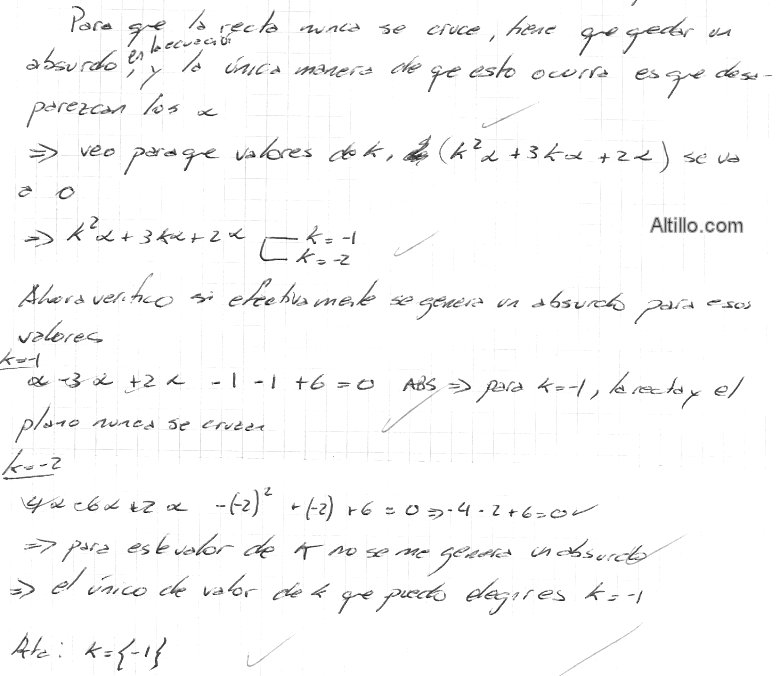 Para que la recta nunca se cruce, tiene que quedar un
absurdo en la ecuación, y la única manera de que esto ocurra es que desa-
parezcan los α
⇒ veo para que valores de k, (k²α + 3kα + 2α) se va
a 0
⇒ k²α + 3kα + 2α k = -1
k = -2
Altillo.com
Ahora verifico si efectivamente se genera un absurdo para esos
valores
k=-1
α - 3α + 2α - 1 - 1 + 6 = 0 ABS ⇒ para k=-1, la recta y el
plano nunca se cruzan
k=-2
4α - 6α + 2α - (-2)² + (-2) + 6 = 0 ⇒ -4 - 2 + 6 = 0 ✓
⇒ para este valor de k no se me genera un absurdo
⇒ el único de valor de k que puedo elegir es k = -1
k = {-1}